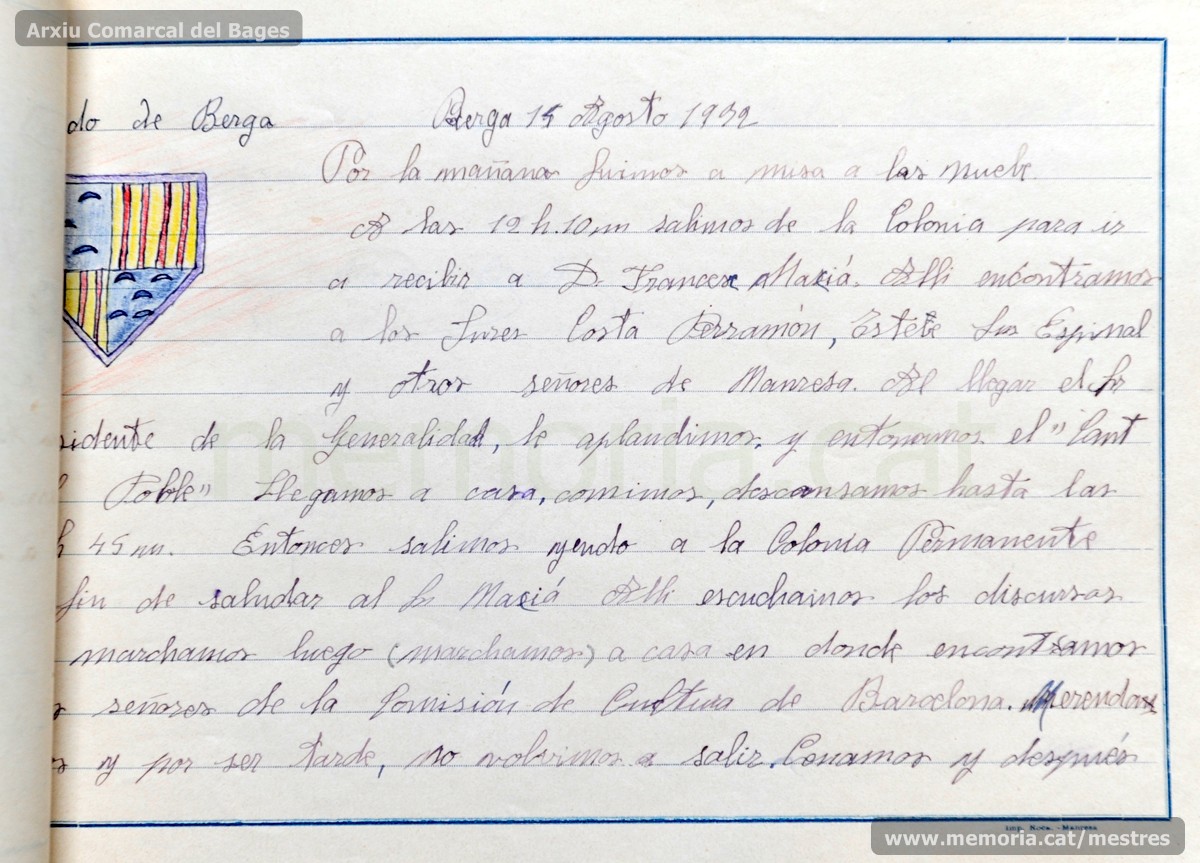 Arxiu Comarcal del Bages
do de Berga Berga 15 Agosto 1932
Por la mañana fuimos a misa a las nueve.
A las 12 h. 10 m salimos de la Colonia para ir
a recibir a D. Francesc Maciá. Alli encontramos
a los Sres Costa Perramón, Estete Sr Espinal
y otros señores de Manresa. Al llegar el Sr
sidente de la Generalidad, le aplaudimos, y entonamos el "Cant
l Poble" Llegamos a casa, comimos, descansamos hasta las
h 45 m. Entonces salimos yendo a la Colonia Permanente
fin de saludar al Sr Maciá Alli escuchamos los discursos
marchamos luego (marchamos) a casa en donde encontramos
s señores de la Comisión de Cultura de Barcelona. Merenda
os y por ser tarde, no volvimos a salir. Cenamos y después
Imp. Roca. - Manresa
memoria.cat
www.memoria.cat/mestres